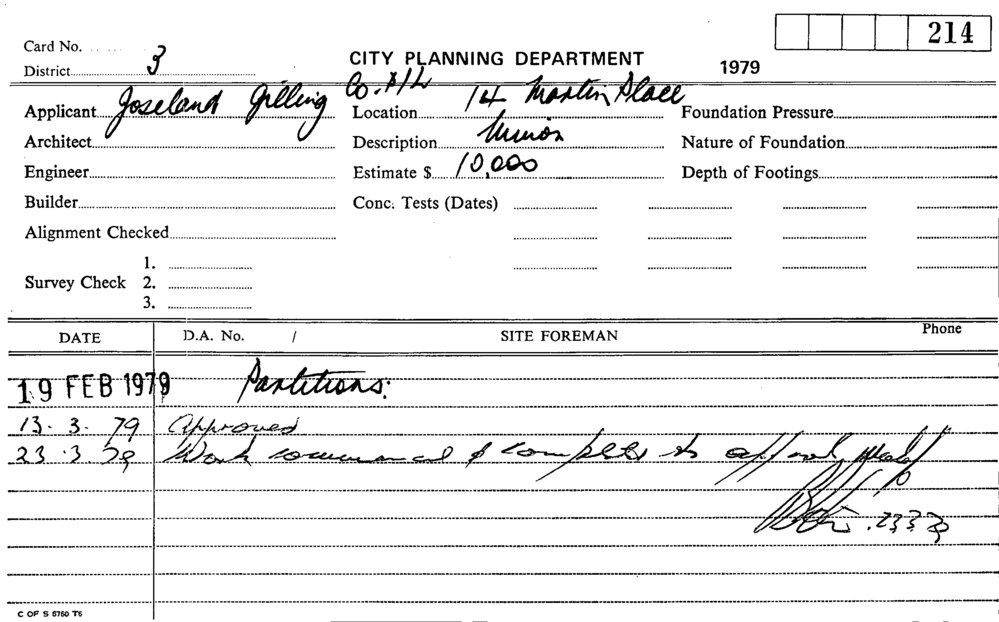 214
Card No.
District 3
CITY PLANNING DEPARTMENT
1979
Applicant Joseland Gilling Co. P/L
Location 14 Martin Place
Foundation Pressure
Architect
Description Minor
Nature of Foundation
Engineer
Estimate $ 10,000
Depth of Footings
Builder
Conc. Tests (Dates)
Alignment Checked
Survey Check 1.
2.
3.
DATE D.A. No. / SITE FOREMAN Phone
19 FEB 1979 Partitions:
13. 3. 79 Approved
23. 3. 79 Work commenced & complete to
23.3.79
C OF S 5760 T6